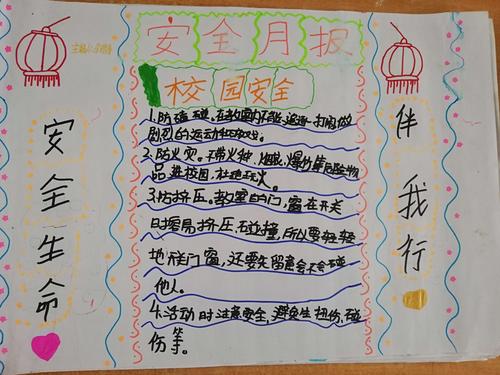 安全月报
校园安全
安全生命
伴我行
1.防磕碰。在教室内不能追逐、打闹、做
剧烈的运动和游戏。
2.防火灾。不带火种、烟花、爆竹等危险物
品进校园,杜绝玩火。
3.防挤压。教室的门,窗在开关
时容易挤压,碰撞,所以要轻轻
地关门窗,还要先留意会不会碰
他人。
4.活动时注意安全,避免生扭伤、碰
伤等。